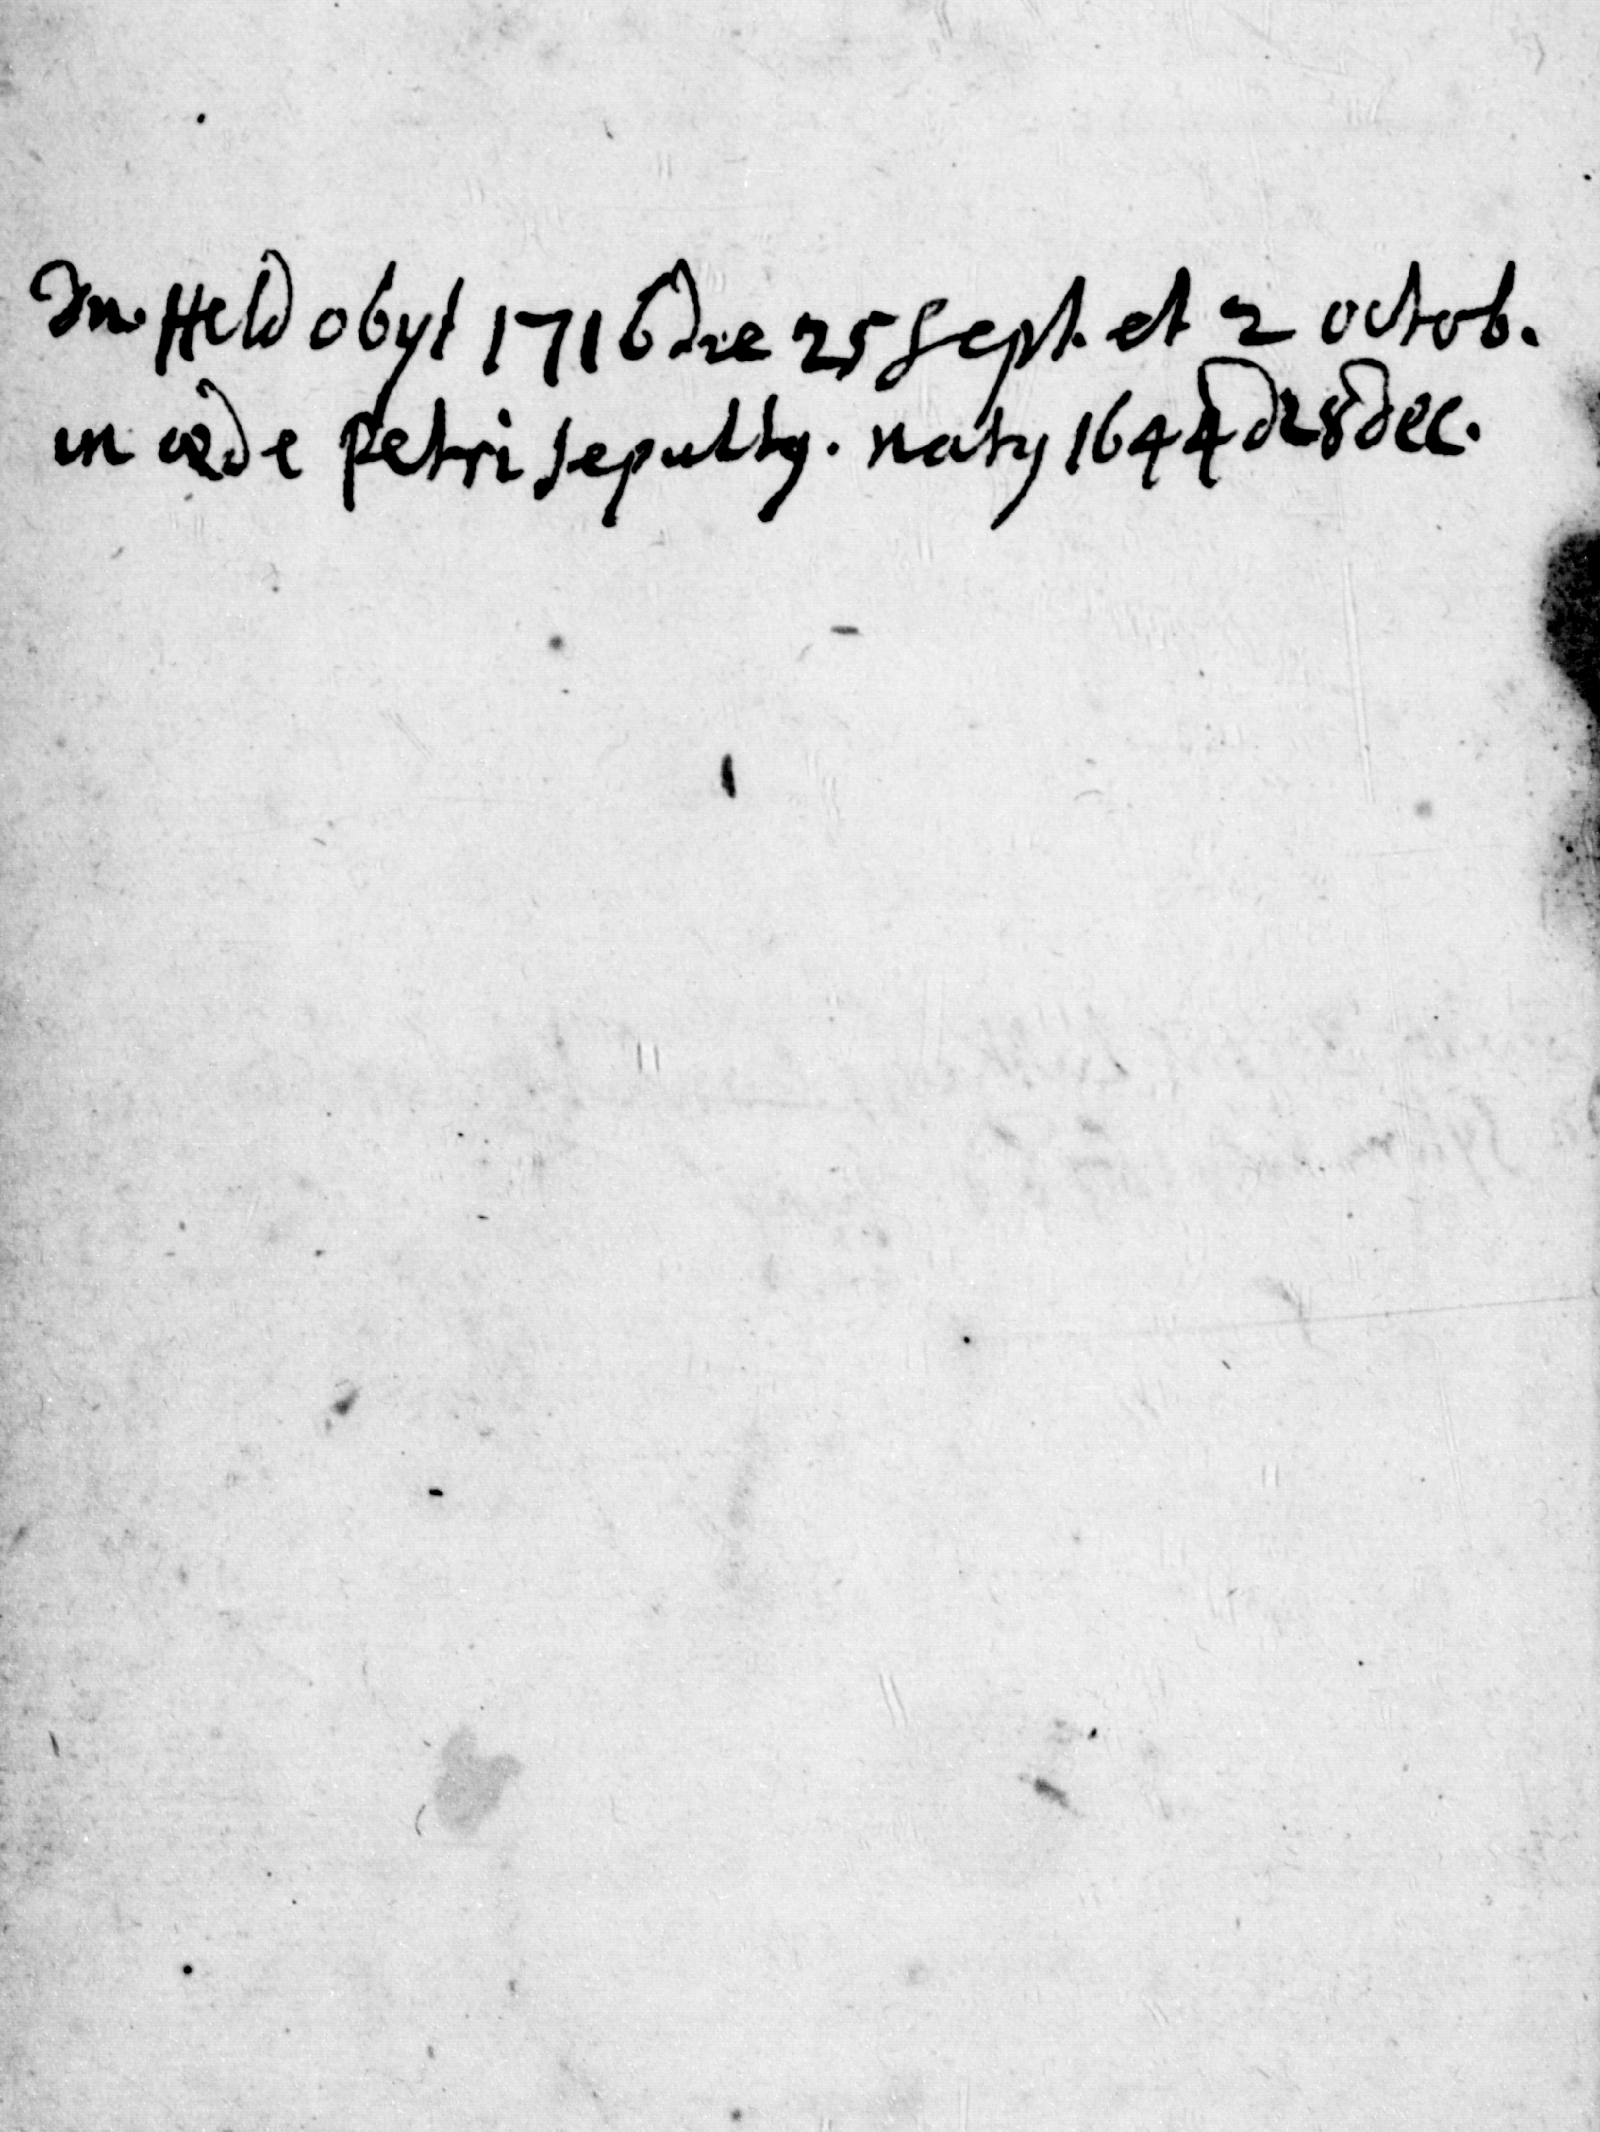 Dn. Held obyt 1716 die 25 Sept. et 2 octob.
in æde Petri sepultq. natq 1644 d 28 dec.